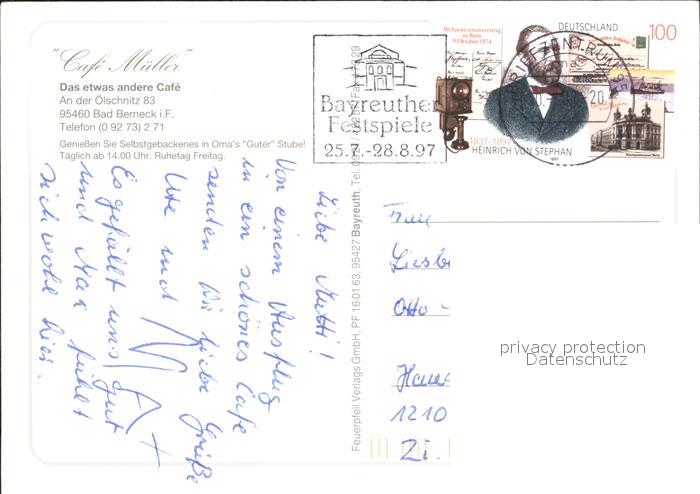 "Café Müller"
Das etwas andere Café
An der Ölschnitz 83
95460 Bad Berneck i.F.
Telefon (0 92 73) 2 71
Genießen Sie Selbstgebackenes in Oma's "Guter" Stube!
Täglich ab 14.00 Uhr. Ruhetag Freitag.
Liebe Mutti!
Von einem Ausflug
in ein schönes Cafe
senden Dir liebe Grüße
Ute und
Es gefällt uns gut
und Max fühlt
sich wohl hier.
Feuerpfeil Verlags GmbH, PF 16 01 63, 95427 Bayreuth, Tel.
Bayreuther
Festspiele
25.7.-28.8.97
Weltpostvereinsvertrag
in Bern
9.Oktober 1874
DEUTSCHLAND
100
BRIEFZENTRUM 95
1831-1897
HEINRICH VON STEPHAN
1997
Frau
Liesb
Otto -
Haue
1210
Zi.
privacy protection
Datenschutz